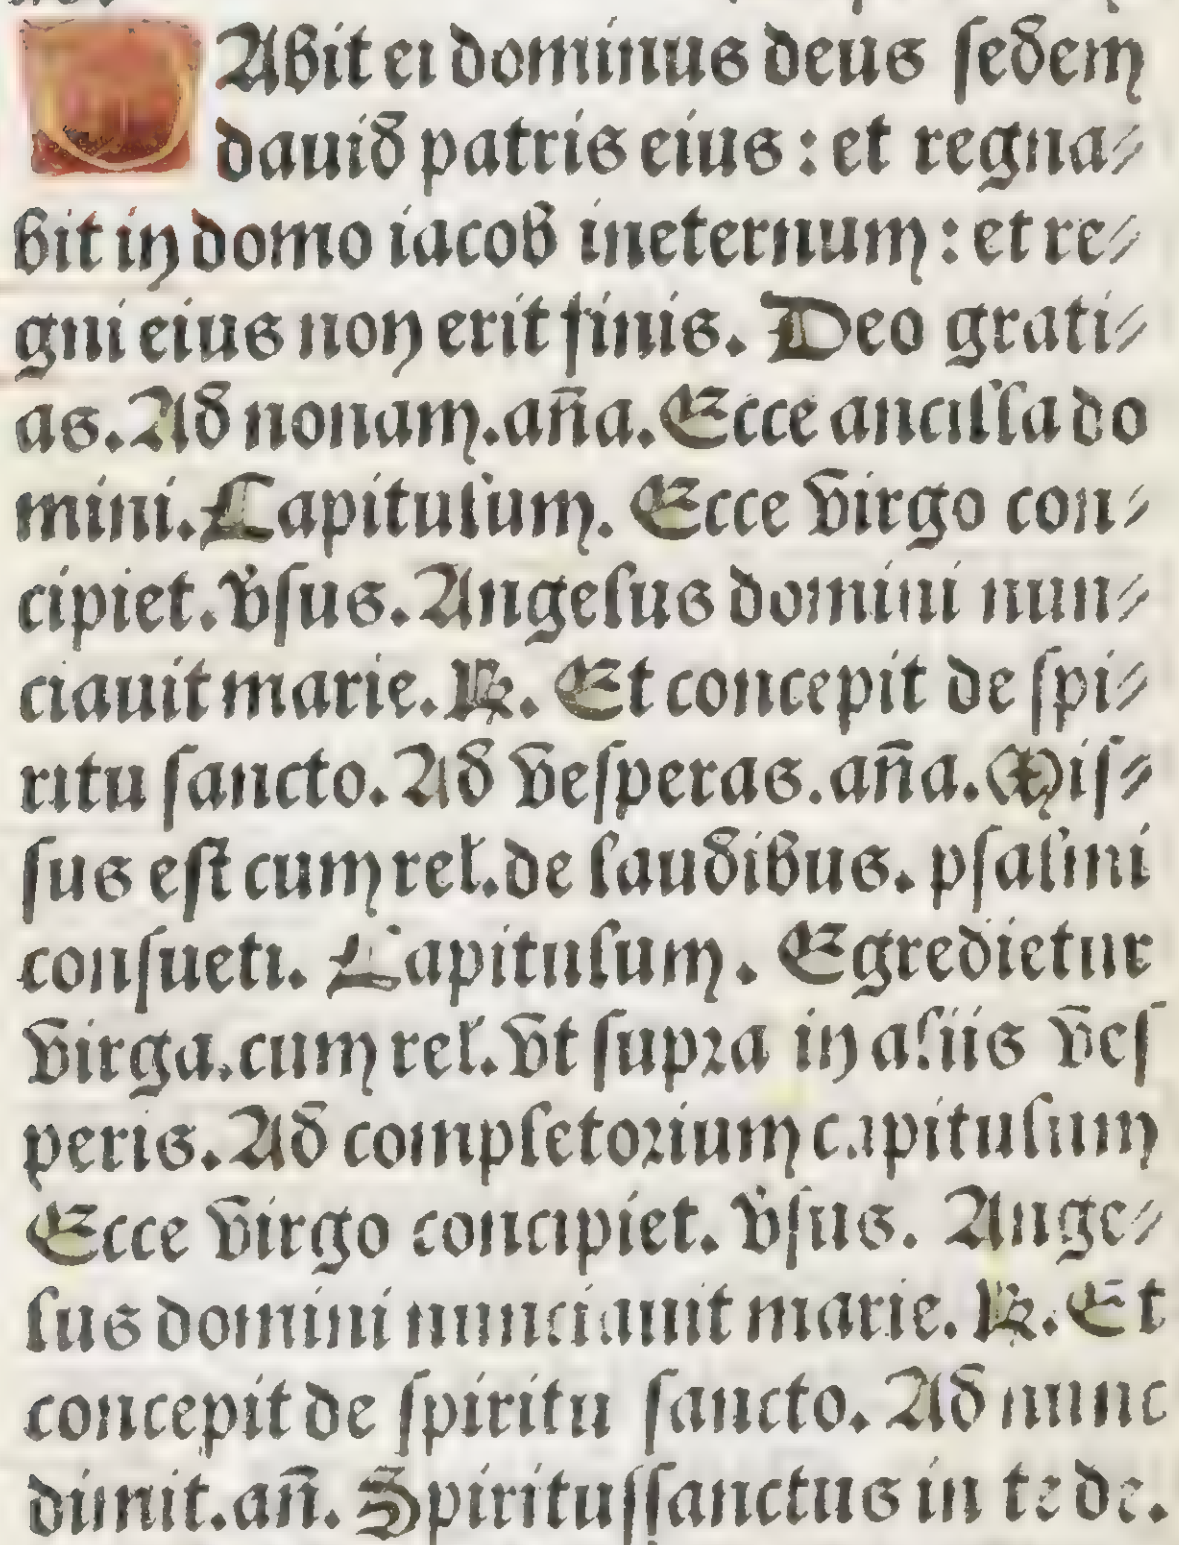 DAbit ei dominus deus sedem
dauid patris eius : et regna⸗
bit in domo iacob ineternum : et re⸗
gni eius non erit finis. Deo grati⸗
as. Ad nonam. aña. Ecce ancilla do
mini. Capitulum. Ecce virgo con⸗
cipiet. v̇sus. Angelus domini nun⸗
ciauit marie. ℟. Et concepit de spi⸗
ritu sancto. Ad vesperas. aña. Mis⸗
sus est cum rel. de laudibus. psalmi
consueti. Capitulum. Egredietur
virga. cum rel. vt supra in aliis ves
peris. Ad completorium capitulum
Ecce virgo concipiet. v̇sus. Ange⸗
lus domini nunciauit marie. ℟. Et
concepit de spiritu sancto. Ad nunc
dimit. añ. Spiritussanctus in te de.